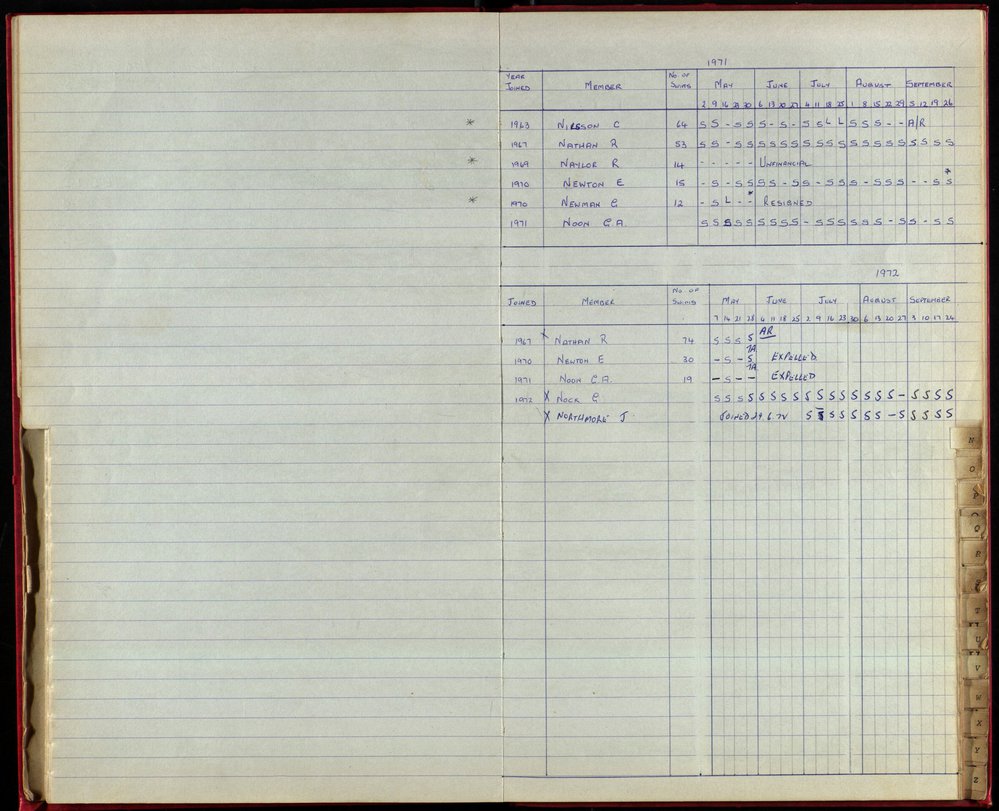 1971
YEAR JOINED MEMBER NO. OF SWIMS MAY JUNE JULY AUGUST SEPTEMBER
2 9 16 23 30 6 13 20 27 4 11 18 25 1 8 15 22 29 5 12 19 26
* 1963 NILSSON C 64 S S - S S S - S - S S L L S S S - - A/R
1967 NATHAN R 53 S S - S S S S S S S S S S S S S S S S S S S
* 1969 NAYLOR R 14 - - - - - UNFINANCIAL
1970 NEWTON E 15 - S - S S S S - S S - S S S - S S S - - S S *
* 1970 NEWMAN G 12 - S L - - * RESIGNED
1971 NOON G.A. S S S S S S S S S - S S S S S S - S S - S S
1972
JOINED MEMBER NO. OF SWIMS MAY JUNE JULY AUGUST SEPTEMBER
7 14 21 28 4 11 18 25 2 9 16 23 30 6 13 20 27 3 10 17 24
1967 X NATHAN R 74 S S S S AR
1970 NEWTON E 30 - S - S EXPELLED
1971 NOON G.A. 19 - S - - EXPELLED
1972 X NOCK G. S S S S S S S S S S S S S S S S - S S S S
X NORTHMORE J JOINED 29.6.72 S S S S S S S - S S S S S
N
O
P
Q
R
T
U
V
W
X
Y
Z